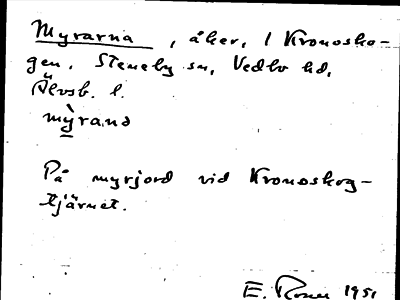 Myrarna, åker, 1 Kronosko-
gen, Steneby sn, Vedbo hd,
Älvsb. l.
mỳrana
På myrjord vid Kronoskog-
tjärnet.
E. 1951